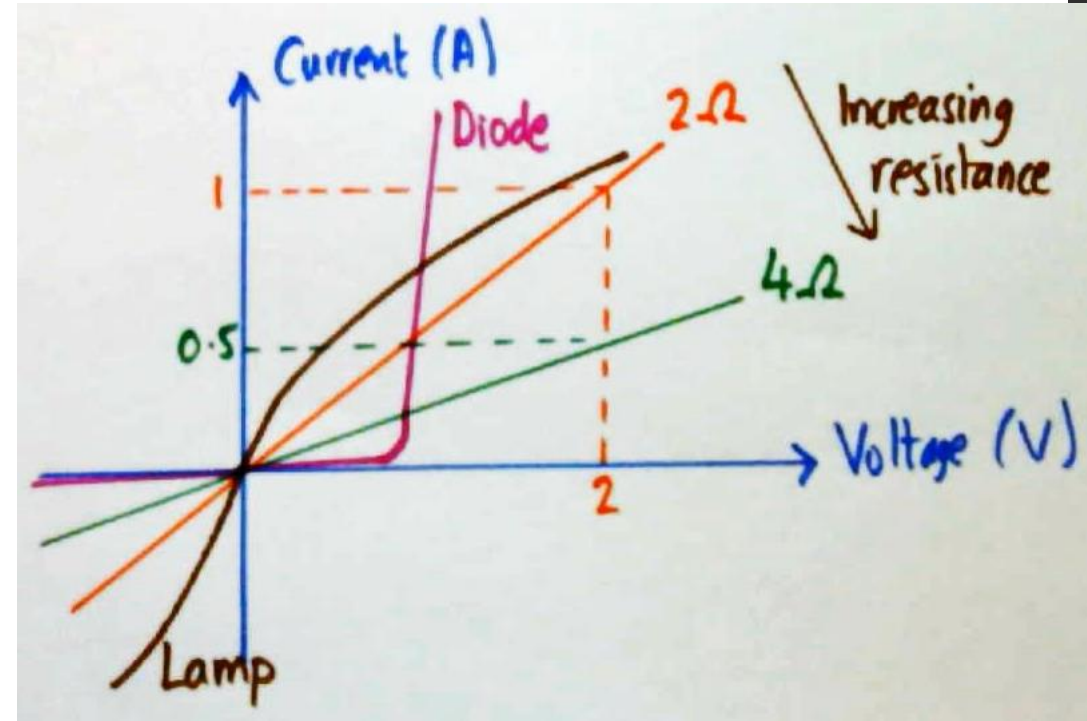 Current (A)
Diode
2Ω
Increasing
resistance
1
4Ω
0.5
Voltage (V)
2
Lamp